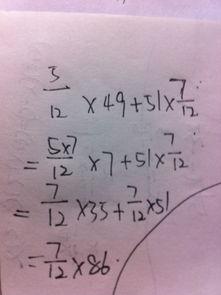 5/12 ×49+51×7/12
= 5×7/12 ×7+51×7/12
= 7/12 ×35+7/12×51
= 7/12 ×86.